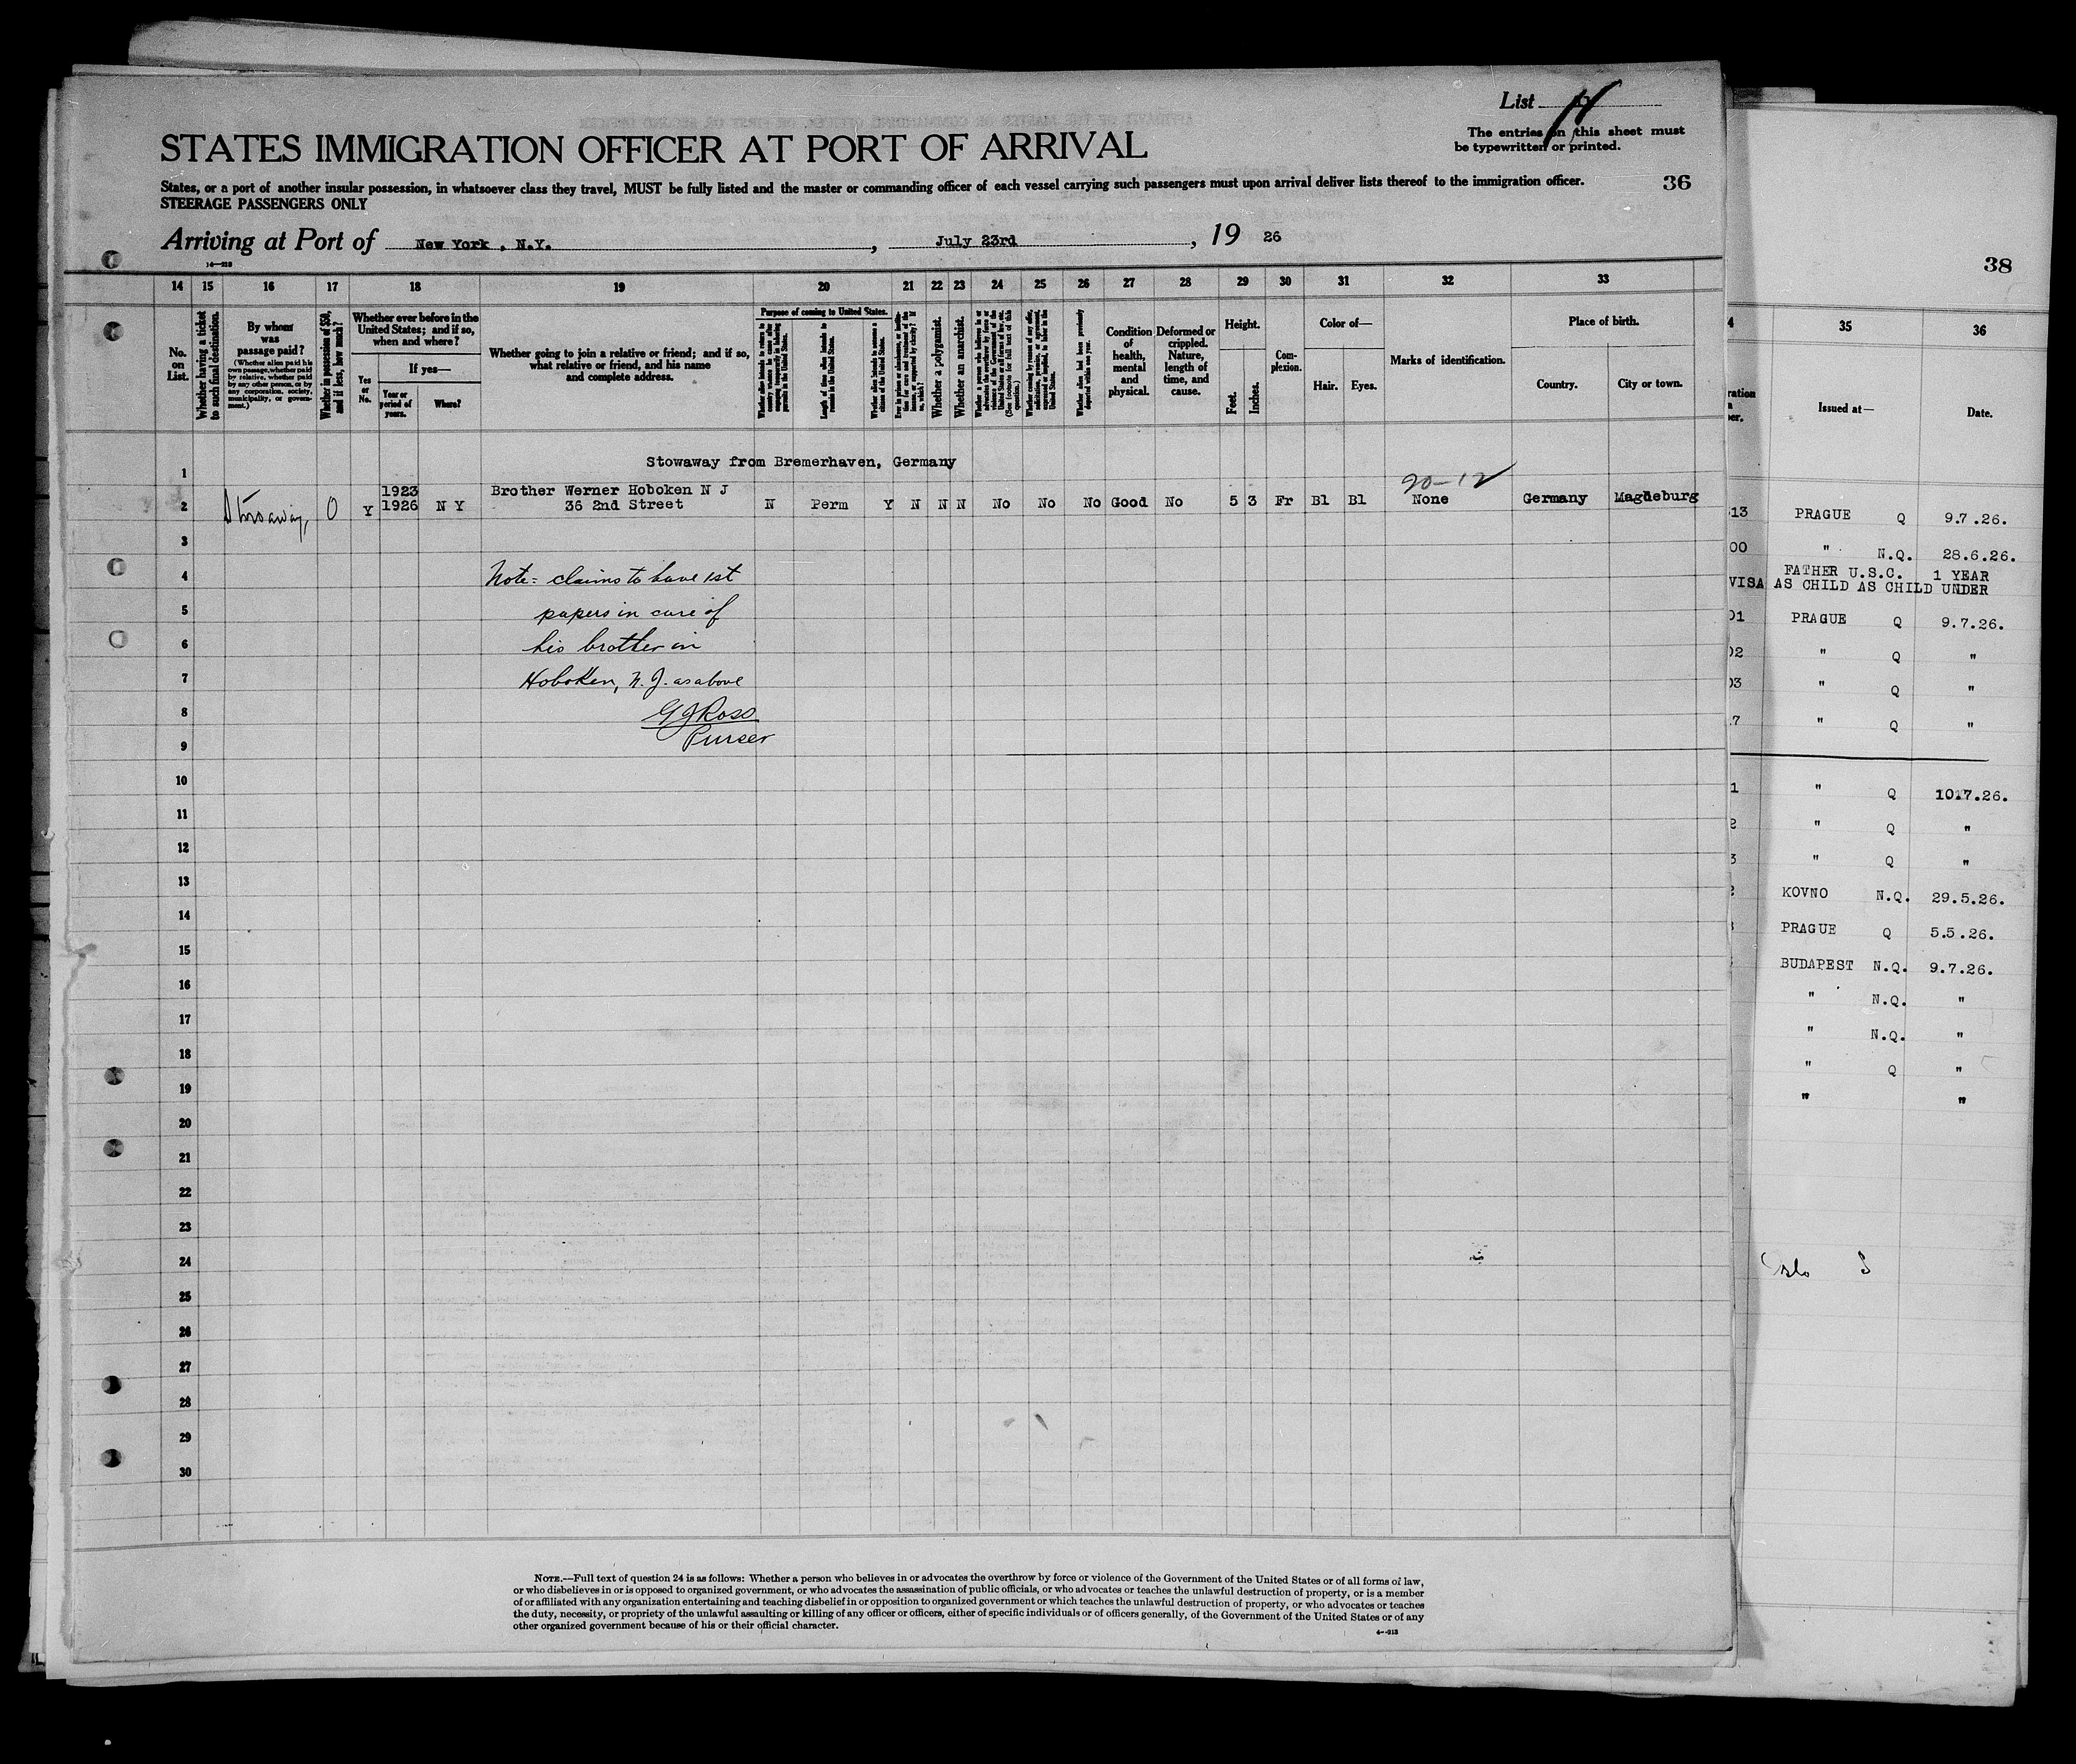 List
The entries on this sheet must
be typewritten or printed.
STATES IMMIGRATION OFFICER AT PORT OF ARRIVAL
States, or a port of another insular possession, in whatsoever class they travel, MUST be fully listed and the master or commanding officer of each vessel carrying such passengers must upon arrival deliver lists thereof to the immigration officer.
36
STEERAGE PASSENGERS ONLY
Arriving at Port of New York , N.Y. , July 23rd , 19 26
38
14 15 16 17 18 19 20 21 22 23 24 25 26 27 28 29 30 31 32 33
35 36
No. on List.
Whether having a ticket to such final destination.
By whom was passage paid?
(Whether alien paid his own passage, whether paid by relative, whether paid by any other person, or by any corporation, society, municipality, or government.)
Whether in possession of $50, and if less, how much?
Whether ever before in the United States; and if so, when and where?
Yes or No.
If yes—
Year or period of years.
Where?
Whether going to join a relative or friend; and if so, what relative or friend, and his name and complete address.
Purpose of coming to United States.
Length of time alien intends to remain in the United States.
Whether a polygamist.
Whether an anarchist.
Condition of health, mental and physical.
Deformed or crippled. Nature, length of time, and cause.
Height.
Feet.
Inches.
Complexion.
Color of—
Hair.
Eyes.
Marks of identification.
Place of birth.
Country.
City or town.
Issued at—
Date.
1 Stowaway from Bremerhaven, Germany
20-12
1923 Brother Werner Hoboken N J
2 Stowaway, 0 Y 1926 N Y 36 2nd Street N Perm Y N N N No No No Good No 5 3 Fr Bl Bl None Germany Magdeburg
3
4 Note: claims to have 1st
5 papers in care of
6 his brother in
7 Hoboken, N.J. as above
8 G J Ross
9 Purser
10
11
12
13
14
15
16
17
18
19
20
21
22
23
24
25
26
27
28
29
30
13 PRAGUE Q 9.7.26.
00 " N.Q. 28.6.26.
FATHER U.S.C. 1 YEAR
VISA AS CHILD AS CHILD UNDER
01 PRAGUE Q 9.7.26.
02 " Q "
03 " Q "
.7 " Q "
1 " Q 10.7.26.
2 " Q "
3 " Q "
2 KOVNO N.Q. 29.5.26.
PRAGUE Q 5.5.26.
BUDAPEST N.Q. 9.7.26.
" N.Q. "
" N.Q. "
" Q "
" "
NOTE.—Full text of question 24 is as follows: Whether a person who believes in or advocates the overthrow by force or violence of the Government of the United States or of all forms of law,
or who disbelieves in or is opposed to organized government, or who advocates the assassination of public officials, or who advocates or teaches the unlawful destruction of property, or is a member
of or affiliated with any organization entertaining and teaching disbelief in or opposition to organized government or which teaches the unlawful destruction of property, or who advocates or teaches
the duty, necessity, or propriety of the unlawful assaulting or killing of any officer or officers, either of specific individuals or of officers generally, of the Government of the United States or of any
other organized government because of his or their official character.